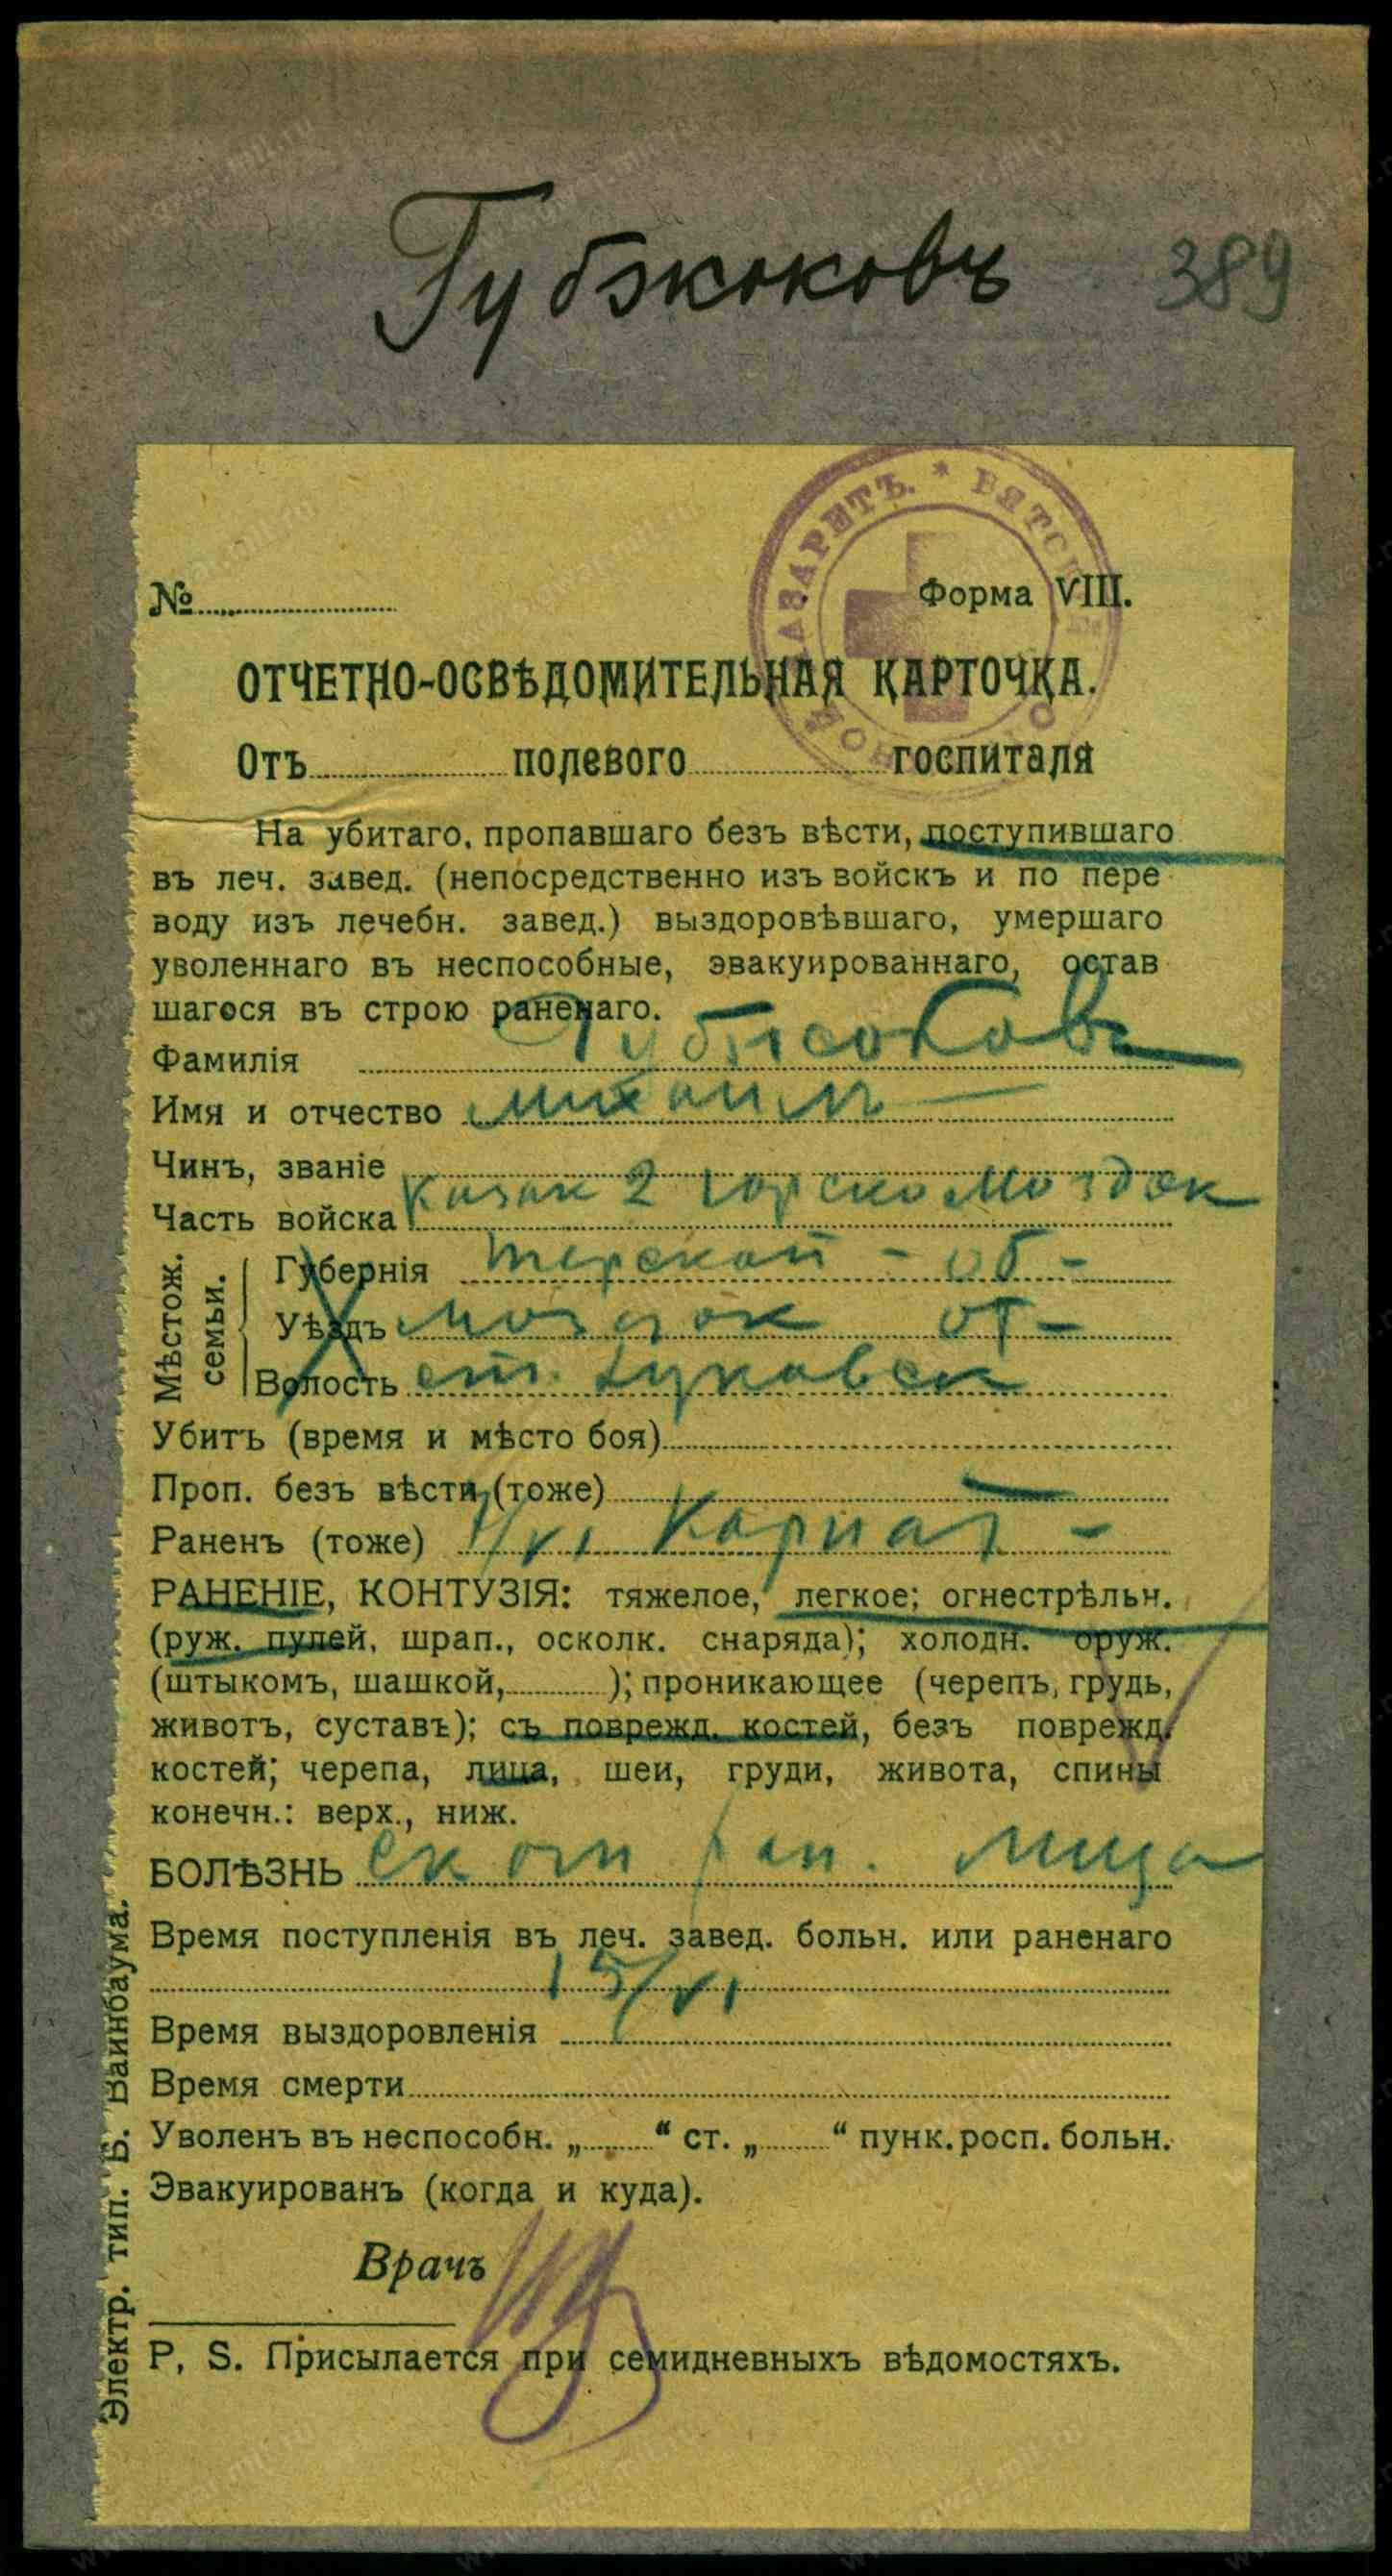 Губжоковъ 389
ЛАЗАРЕТЪ. * ВЯТСК
№ Форма VIII.
ОТЧЕТНО-ОСВѢДОМИТЕЛЬНАЯ КАРТОЧКА.
Отъ полевого госпиталя
На убитаго, пропавшаго безъ вѣсти, поступившаго
въ леч. завед. (непосредственно изъ войскъ и по пере
воду изъ лечебн. завед.) выздоровѣвшаго, умершаго
уволеннаго въ неспособные, эвакуированнаго, остав
шагося въ строю раненаго.
Фамилія
Имя и отчество Михаилъ
Чинъ, званіе
Казак 2 горско Моздок
Часть войска
Мѣстож. семьи.
Губернія Терской - об -
Уѣздъ Моздок от -
Волость ст. Луковск
Убитъ (время и мѣсто боя)
Проп. безъ вѣсти (тоже)
Раненъ (тоже) /VI Карпат -
РАНЕНІЕ, КОНТУЗІЯ: тяжелое, легкое; огнестрѣльн.
(руж. пулей, шрап., осколк. снаряда); холодн. оруж.
(штыкомъ, шашкой, ); проникающее (черепъ, грудь,
животъ, суставъ); съ поврежд. костей, безъ поврежд.
костей; черепа, лица, шеи, груди, живота, спины
конечн.: верх., ниж.
БОЛѢЗНЬ ран. лица
Время поступленія въ леч. завед. больн. или раненаго
15/VI
Время выздоровленія
Время смерти
Уволенъ въ неспособн. „ “ ст. „ “ пунк. росп. больн.
Эвакуированъ (когда и куда).
Врачъ
P, S. Присылается при семидневныхъ вѣдомостяхъ.
Электр. тип. Б. Вайнбаума.